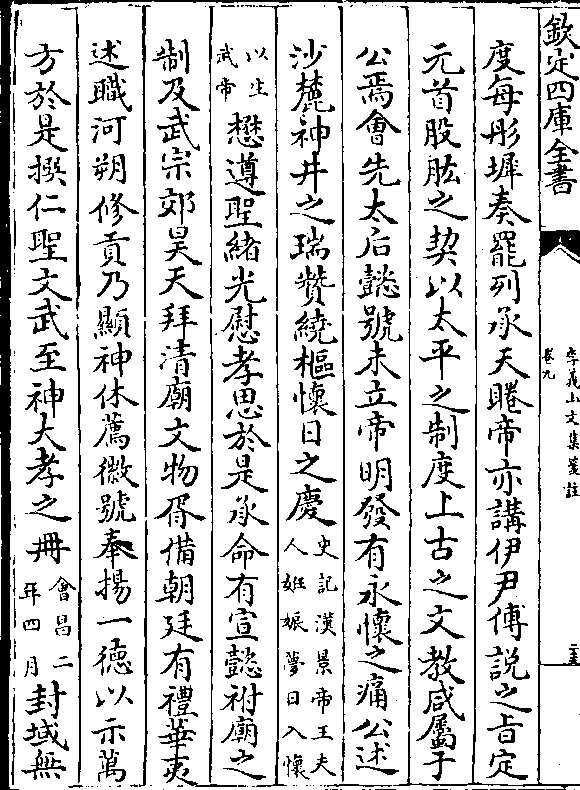 欽定四庫全書
李義山文集箋註
卷九
度每彤墀奏罷列承天睠帝亦講伊尹傅説之旨定
元首股肱之契以太平之制度上古之文教咸屬于
公焉會先太后懿號未立帝明發有永懷之痛公述
沙麓神井之瑞贊繞樞懷日之慶史記漢景帝王夫
人姙娠夢日入懷
以生
武帝懋遵聖緒光慰孝思於是承命有宣懿祔廟之
制及武宗郊昊天拜清廟文物胥備朝廷有禮華夷
述職河朔修貢乃顯神休薦徽號奉揚一德以示萬
方於是撰仁聖文武至神大孝之冊會昌二
年四月封域無